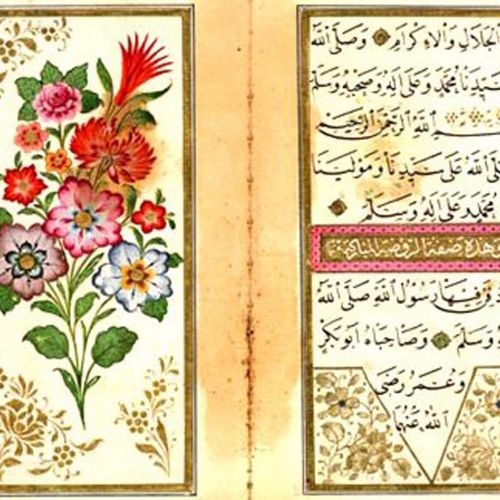 الْجَلَالِ وَالْاِكْرَامِ وَصَلَّى اللّٰهُ
سَيِّدِنَا مُحَمَّدٍ وَعَلٰى اٰلِهِ وَصَحْبِهِ وَسَلَّمَ
اللّٰهِ الرَّحْمٰنِ الرَّحِيمِ
اللّٰهُ عَلٰى سَيِّدِنَا وَمَوْلٰينَا
مُحَمَّدٍ وَعَلٰى اٰلِهِ وَسَلَّمَ
هٰذِهِ صِفَةُ الرَّوْضَةِ الْمُبَارَكَةِ
فِيهَا رَسُولُ اللّٰهِ صَلَّى اللّٰهُ
وَسَلَّمَ وَصَاحِبَاهُ اَبُو بَكْرٍ
وَعُمَرُ رَضِيَ
اللّٰهُ عَنْهُمَا